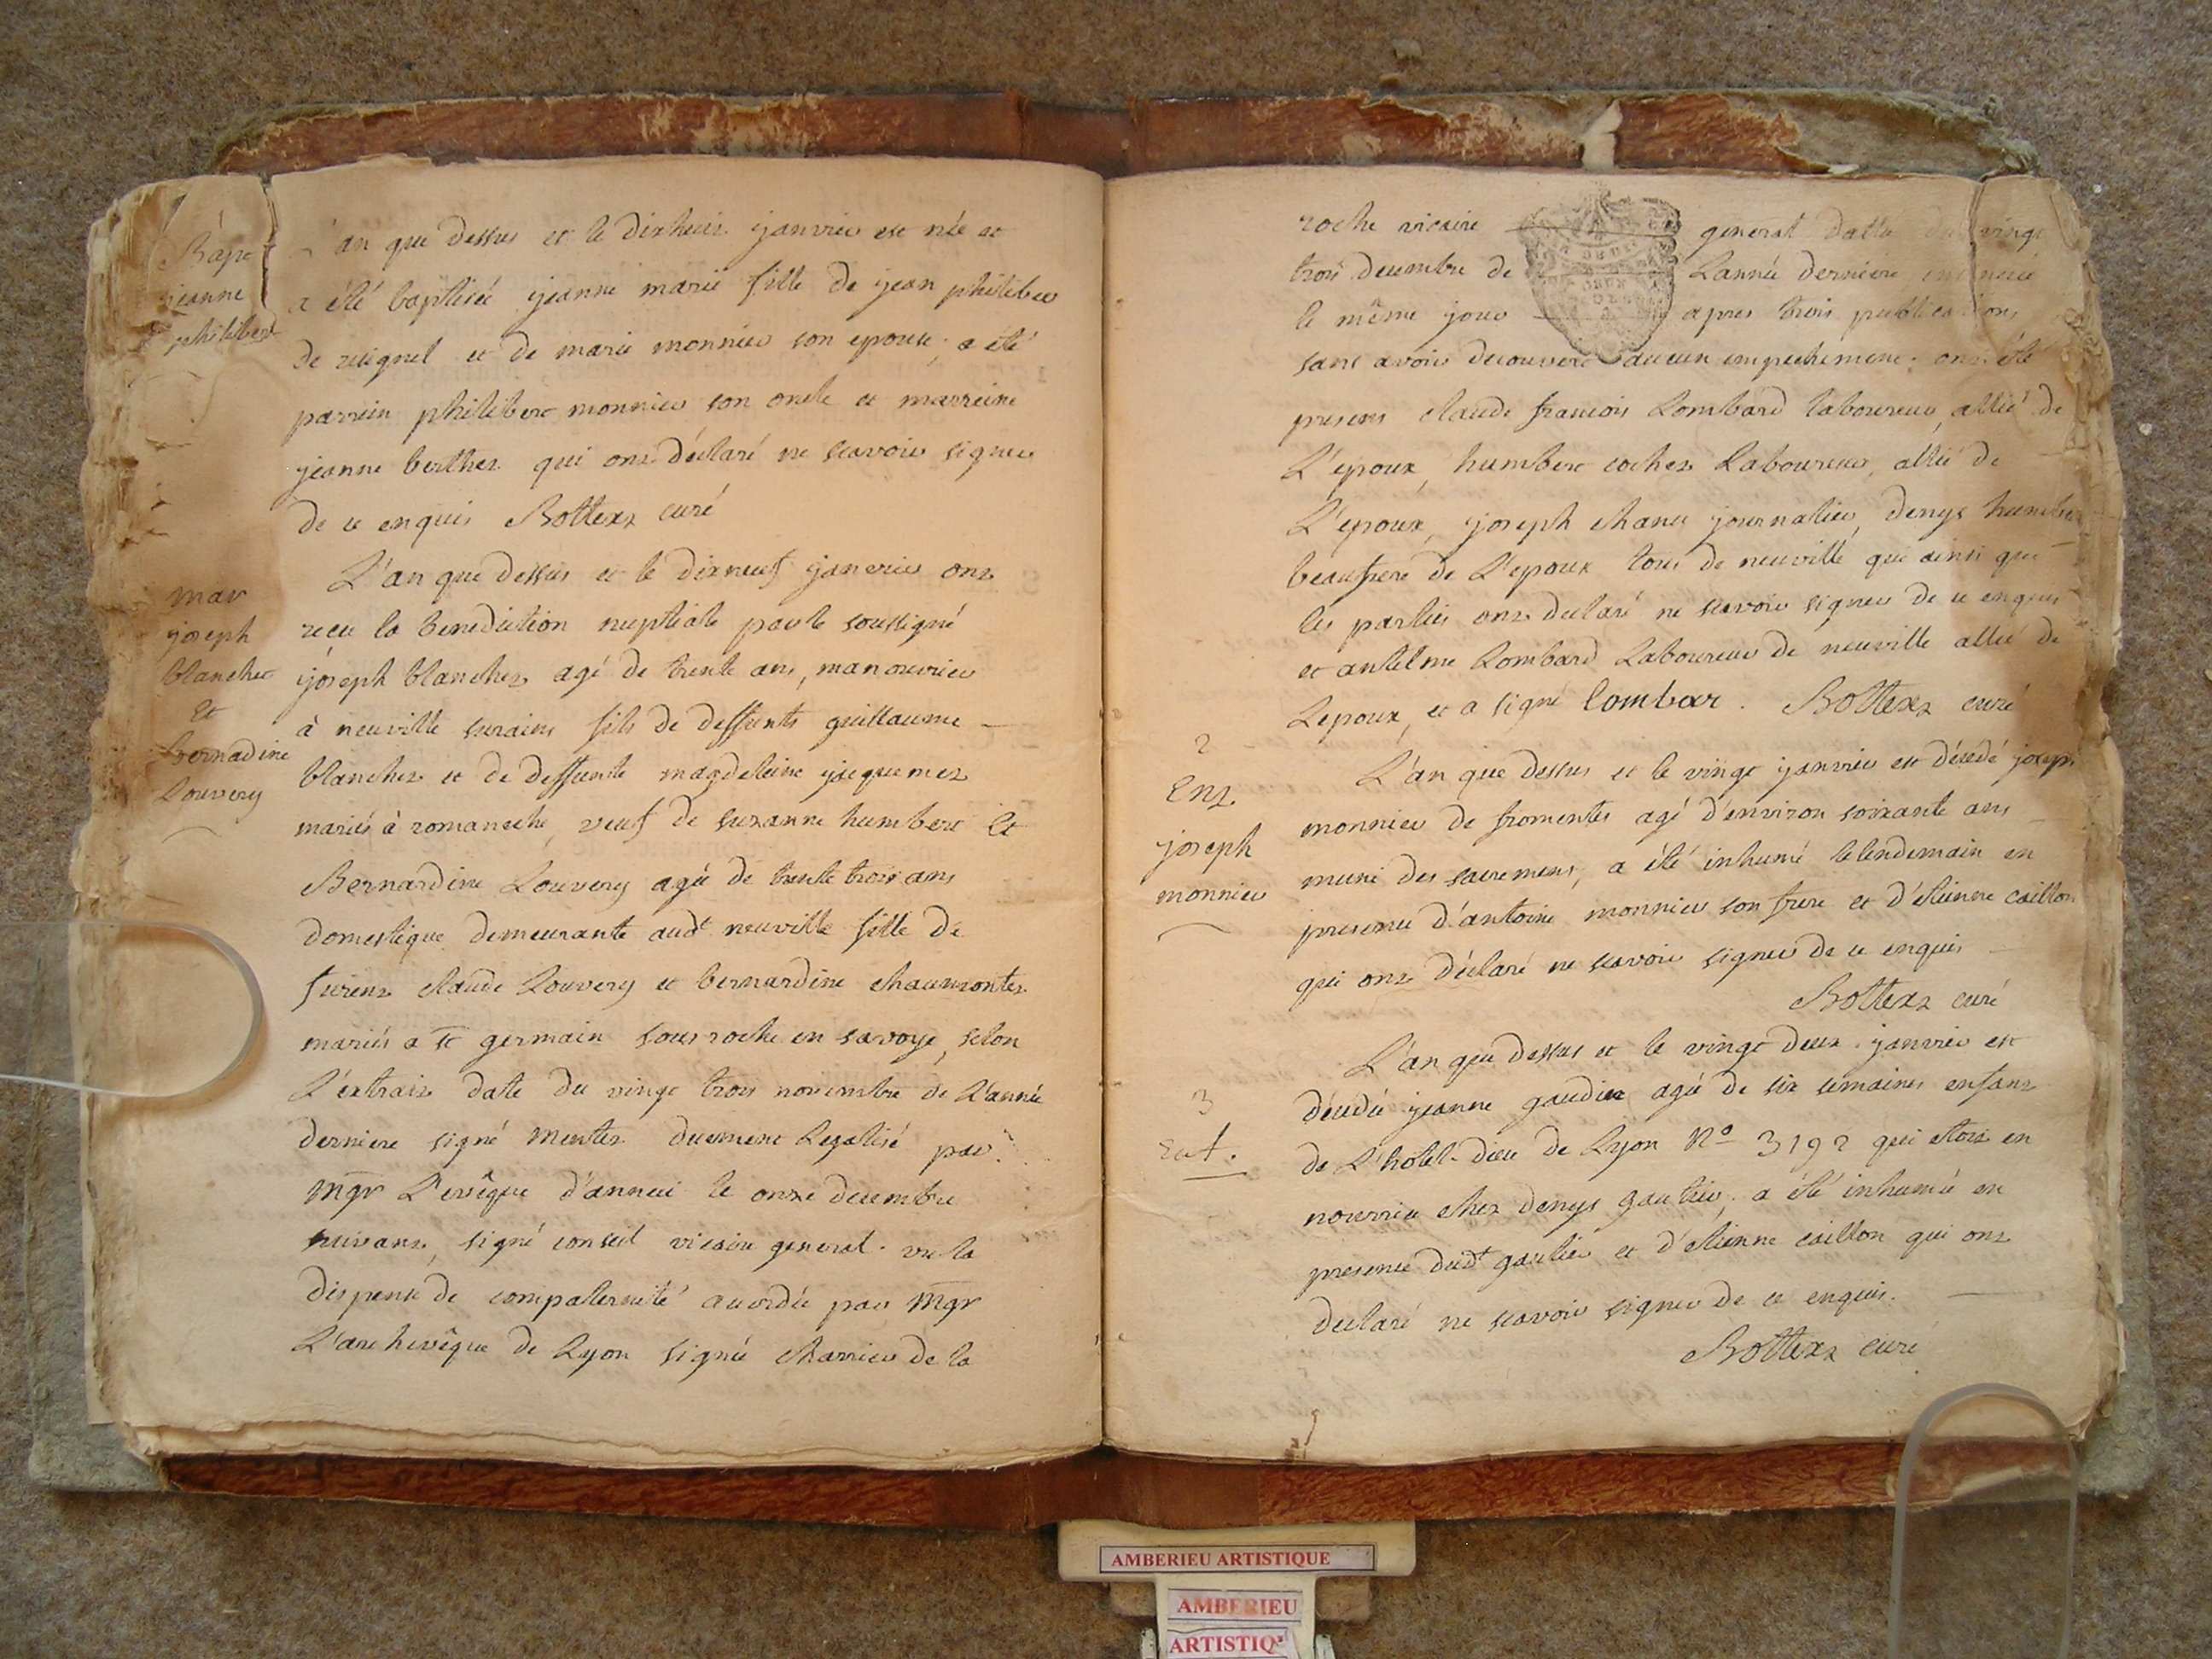 Bapt
jeanne
philibert
an que dessus et le dixhuit janvier est née et
a été baptisée jeanne marie fille de jean philiber
de reignel et de marie monnier son epouse, a été
parrein philibert monnier son oncle et marreine
jeanne berthet qui ont déclaré ne scavoir signer
de ce enquis Bottex curé
mar
joseph
blanchet
Et
bernadine
Louvery
L'an que dessus et le dixneuf janvier ont
recu la benediction nuptiale par le soussigné
joseph blanchet agé de trente ans, manouvrier
à neuville surains fils de deffunts guillaume
blanchet et de deffunte magdeleine jacquemet
mariés à romaneche, veuf de suzanne humbert Et
Bernardine Louvery agée de trente trois ans
domestique demeurante audt neuville fille de
furent claude Louvery et bernardine chaumontet
mariés a st germain sous roche en savoye, selon
L'extrait date du vingt trois novembre de L'année
derniere signé menter duement Legalisé par
Mgr L'evêque d'anneci le onze decembre
suivant, signé conseil vicaire general. vu la
dispense de compaternité accordée par Mgr
L'archevêque de Lyon signée charrier de la
roche vicaire general datte du vingt
trois decembre de L'année derniere
le même jour apres trois publications
sans avoir decouvert aucun empechement; ont été
presents claude francois Lombard laboureur, allié de
L'epoux, humbert cochet Laboureur, allié de
L'epoux, joseph chanu journalier, denys humber
beaufrere de L'epoux tous de neuville qui ainsi que
les parties ont declaré ne scavoir signer de ce enquis
et antelme Lombard Laboureur de neuville allié de
Lepoux, et a signé lombar. Bottex curé
2
Ent.
joseph
monnier
L'an que dessus et le vingt janvier est décédé joseph
monnier de fromentes agé d'environ soixante ans
muni des sacremens, a été inhumé lelendemain en
presence d'antoine monnier son frere et d'etienne caillon
qui ont déclaré ne scavoir signer de ce enquis
Bottex curé
3
Ent.
L'an que dessus et le vingt deux janvier est
décédée jeanne gaudin agée de six semaines enfant
de L'hotel-dieu de Lyon No 3192 qui etoit en
nourrice chez denys gautier, a été inhumée en
presence dudt gautier et d'etienne caillon qui ont
declaré ne scavoir signer de ce enquis.
Bottex curé
AMBERIEU ARTISTIQUE
AMBERIEU
ARTISTIQ